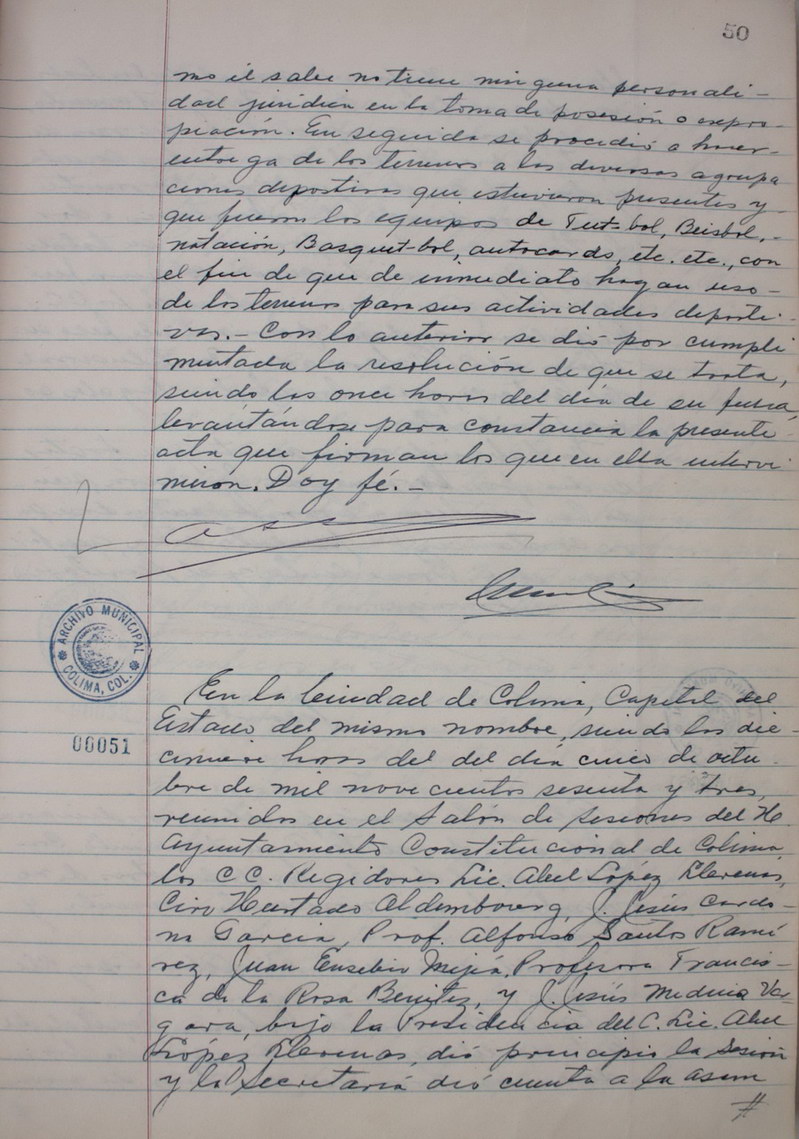 50
mo él sabe no tiene ninguna personali-
dad jurídica en la toma de posesión o expro-
piación. En seguida se procedió a hacer-
entrega de los terrenos a las diversas agrupa
ciones deportivas que estuvieron presentes y-
que fueron los equipos de Fut-bol, Beisbol,-
natación, Basquet-bol, autocards, etc. etc., con
el fin de que de inmediato hagan uso-
de los terrenos para sus actividades deporti-
vas.- Con lo anterior se dió por cumpli
mentada la resolución de que se trata,
siendo las once horas del día de su fecha,
levantándose para constancia la presente
acta que firman los que en ella intervi
nieron. Doy fé.-
ARCHIVO MUNICIPAL
COLIMA, COL.
En la Ciudad de Colima, Capital del
Estado del mismo nombre, siendo las die-
cinueve horas del del día cinco de octu-
bre de mil novecientos sesenta y tres,
00051
reunidos en el Salón de Sesiones del H.
Ayuntamiento Constitucional de Colima
los C.C. Regidores Lic. Abel López Llerenas,
Ciro Hurtado Aldembourg, J. Jesús Cardo-
na García, Prof. Alfonso Santos Ramí
rez, Juan Eusebio Mejía, Profesora Francis-
ca de la Rosa Benitez, y J. Jesús Medina Ver-
gara, bajo la Presidencia del C. Lic. Abel
López Llerenas, dió principio la Sesión
y la Secretaría dió cuenta a la asam
#